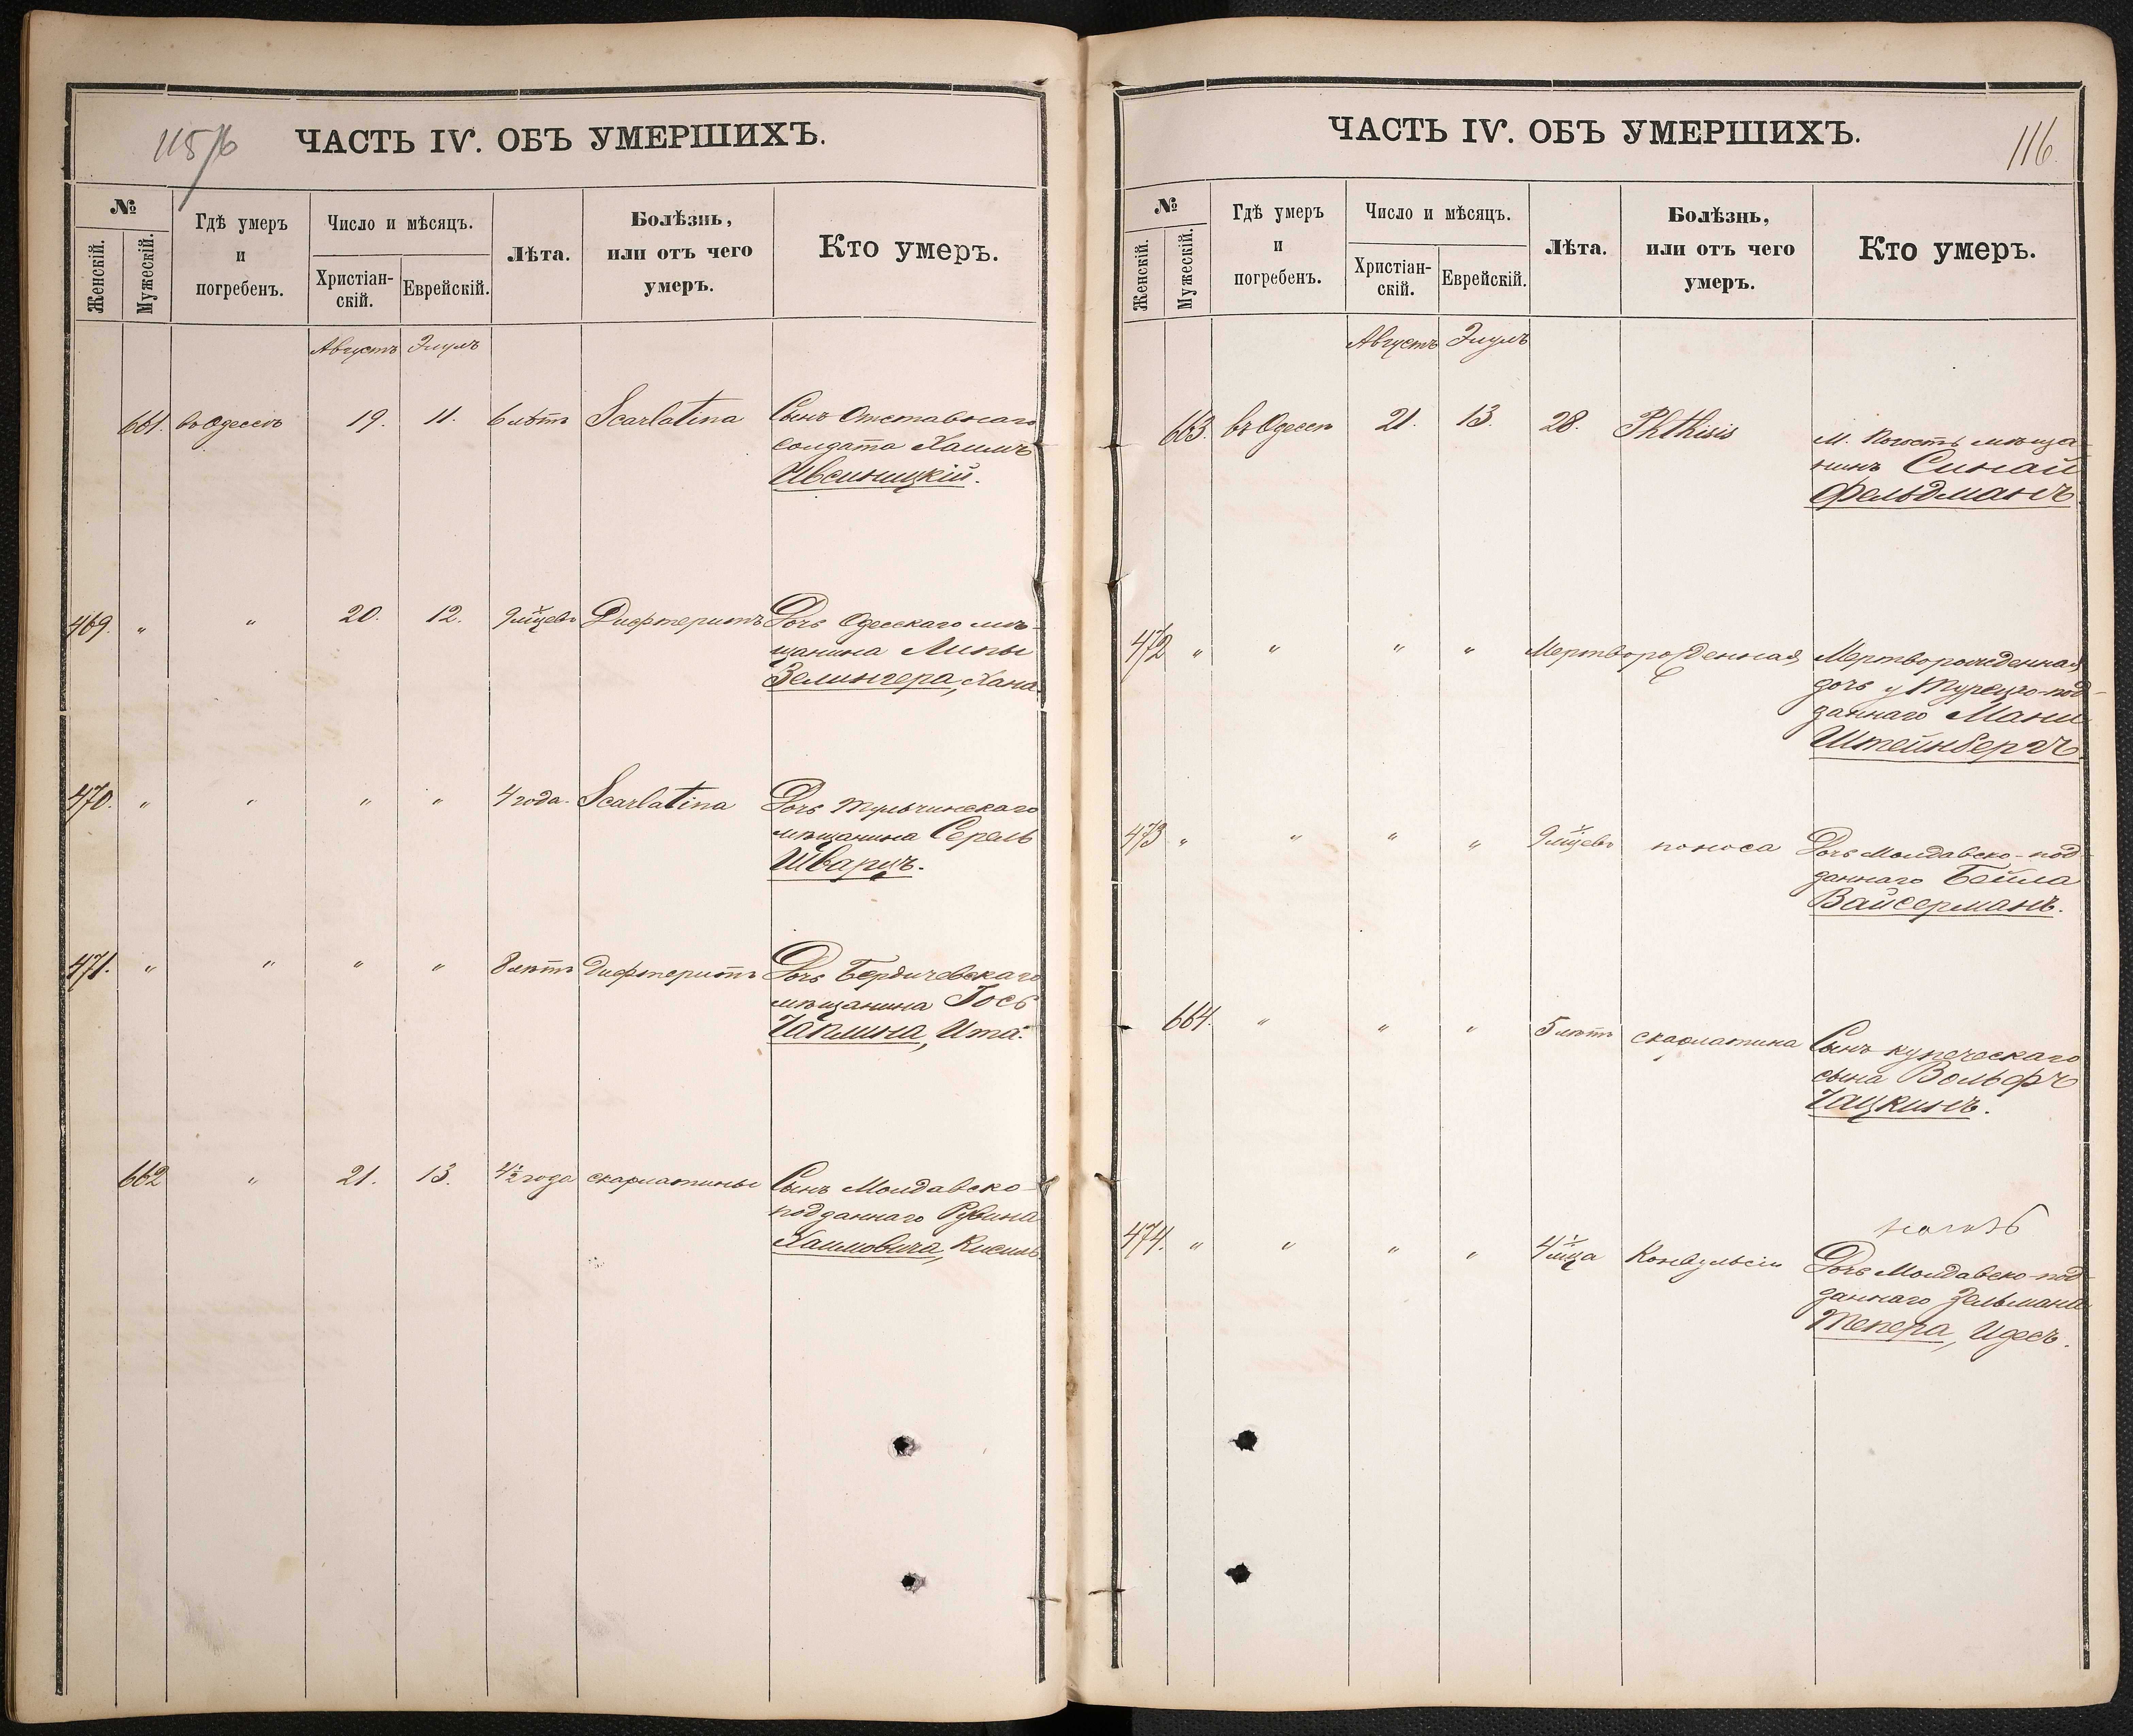 115/б
ЧАСТЬ IV. ОБЪ УМЕРШИХЪ.
№
Женскій.
Мужескій.
Гдѣ умеръ
и
погребенъ.
Число и мѣсяцъ.
Христіан-
скій.
Еврейскій.
Лѣта.
Болѣзнь,
или отъ чего
умеръ.
Кто умеръ.
Августъ Элулъ
661. въ Одессѣ 19. 11. 6 лѣтъ Scarlatina Сынъ Отставнаго
солдата Хаимъ
469. " " 20. 12. 9 м‑цевъ Дифтеритъ Дочь Одесскаго мѣ-
щанина Липы
Зелингера, Хана.
470. " " " " 4 года. Scarlatina Дочь Тульчинскаго
мѣщанина Серель
Шварцъ.
471. " " " " 8 лѣтъ Дифтеритъ Дочь Бердичевскаго
мѣщанина Іосъ
Чаплина, Ита.
662 " 21. 13. 4½ года скарлатины Сынъ Молдавско-
подданнаго Рувина
Хаимовича, Кисиль
116.
ЧАСТЬ IV. ОБЪ УМЕРШИХЪ.
№
Женскій.
Мужескій.
Гдѣ умеръ
и
погребенъ.
Число и мѣсяцъ.
Христіан-
скій.
Еврейскій.
Лѣта.
Болѣзнь,
или отъ чего
умеръ.
Кто умеръ.
Августъ Элулъ
663. въ Одессѣ 21. 13. 28. Phthisis М. Погостъ мѣща-
нинъ Синай
Фельдманъ
472 " " " " Мертворожденная Мертворожденная
дочь у Турецко-под-
даннаго Мани
Штейнбергъ.
473 " " " " 9 м‑цевъ поноса Дочь Молдавско-под-
даннаго Бейла
Вайсерманъ.
664. " " " 5 лѣтъ скарлатина Сынъ купеческаго
сына Вольфъ
Чацкинъ.
474. " " " " 4 м‑ца Конвульсіи Дочь Молдавско-под-
даннаго Зельмана
Тепера, Идесъ.